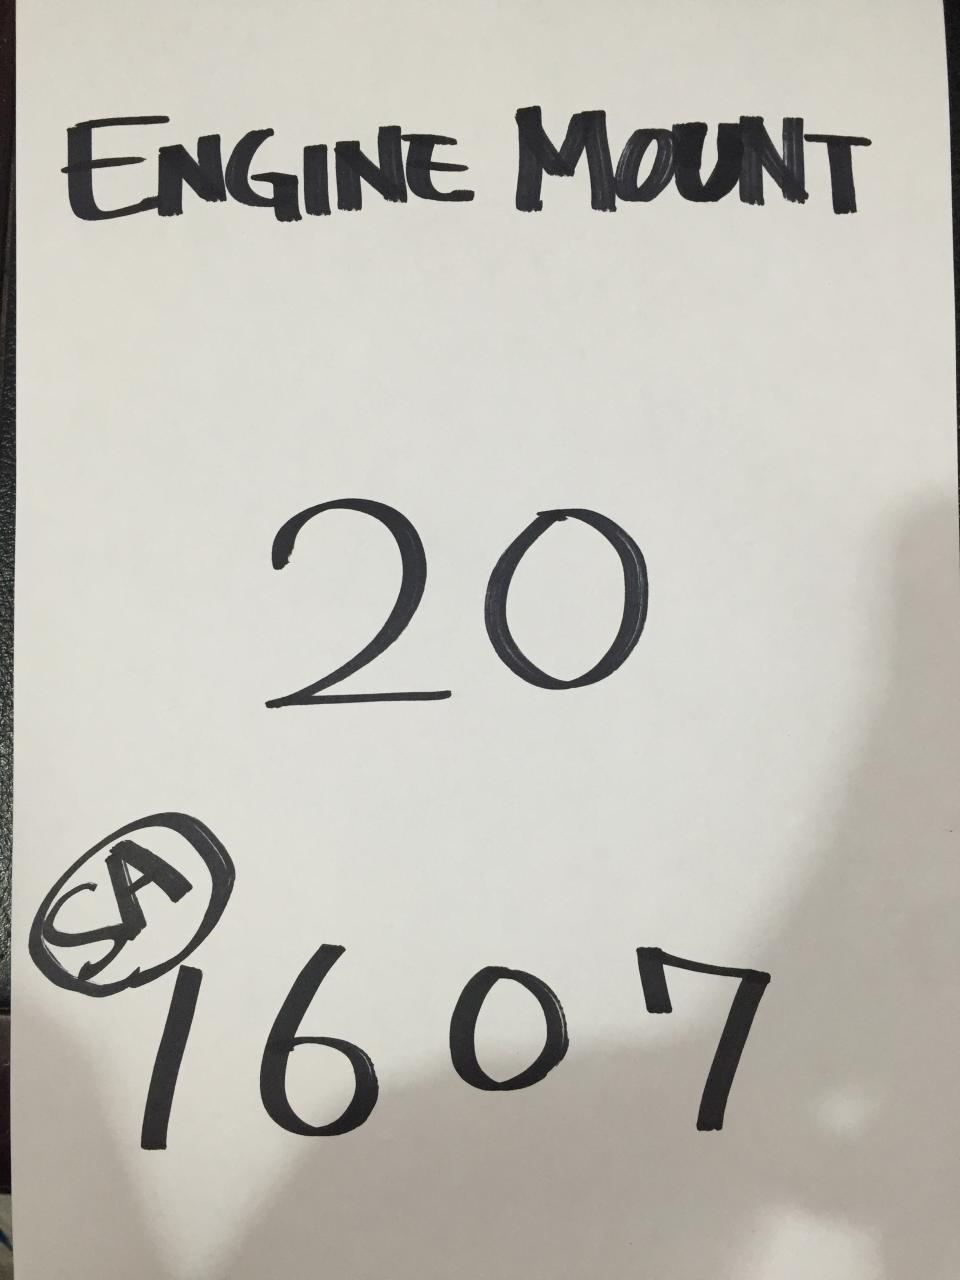 ENGINE MOUNT
20
SA
1607